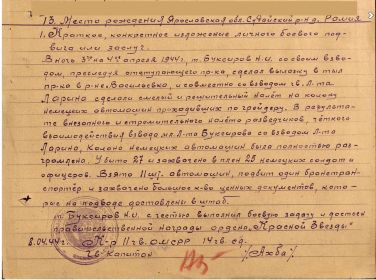 13. Место рождения Ярославская обл. Судайский р-н д. Рамия
1. Краткое, конкретное изложение личного боевого под-
вига или заслуг.
В ночь 3го на 4ое апреля 1944г. т. Буксиров Н.И. со своим взво-
дом, преследуя отступающего пр-ка, сделал вылазку в тыл
пр-ка в р-не Васильевка, и совместно со взводом гв. Л-та
Ларина сделали смелый и решительный налёт на колону
немецких автомашин проходивших по грейдеру. В результа-
те внезапного и стремительного налёта разведчиков, чёткого
взаимодействия взвода мл. Л-та Буксирова со взводом Л-та
Ларина, Колона немецких автомашин была полностью раз-
громлена. Убито 27 и захвачено в плен 28 немецких солдат и
офицеров. Взято 11 шт. автомашин, подбит один бронетран-
спортёр и захвачено большое к-во ценных документов, кото-
рые на подводе доставлены в штаб.
т. Буксиров Н.И. с честью выполнил боевую задачу и достоен
правительственной награды ордена „Красной Звезды"
8.04.44г. К-р 11 гв. ОМСРР 14 гв. сд.
Гв. Капитан /Ахба/